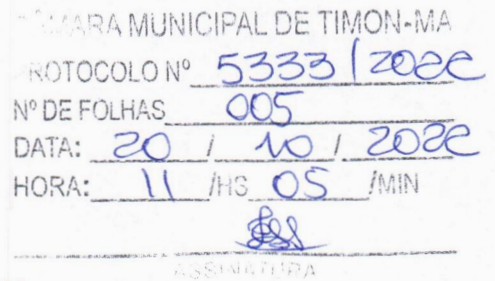 CÂMARA MUNICIPAL DE TIMON-MA
PROTOCOLO Nº 5333/2022
Nº DE FOLHAS 005
DATA: 20 / 10 / 2022
HORA: 11 /HS 05 /MIN
ASSINATURA